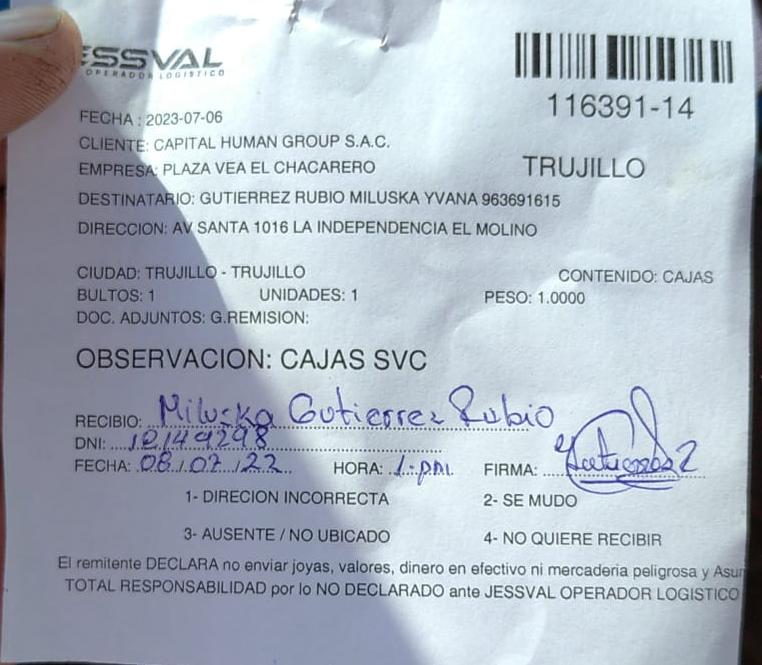 ESSVAL
OPERADOR LOGISTICO
116391-14
FECHA : 2023-07-06
CLIENTE: CAPITAL HUMAN GROUP S.A.C.
EMPRESA: PLAZA VEA EL CHACARERO
TRUJILLO
DESTINATARIO: GUTIERREZ RUBIO MILUSKA YVANA 963691615
DIRECCION: AV SANTA 1016 LA INDEPENDENCIA EL MOLINO
CIUDAD: TRUJILLO - TRUJILLO CONTENIDO: CAJAS
BULTOS: 1 UNIDADES: 1 PESO: 1.0000
DOC. ADJUNTOS: G.REMISION:
OBSERVACION: CAJAS SVC
RECIBIO: Miluska Gutierrez Rubio
DNI: 18149298
FECHA: 08/07/22 HORA: 1:pm FIRMA:
1- DIRECION INCORRECTA 2- SE MUDO
3- AUSENTE / NO UBICADO 4- NO QUIERE RECIBIR
El remitente DECLARA no enviar joyas, valores, dinero en efectivo ni mercaderia peligrosa y Asur
TOTAL RESPONSABILIDAD por lo NO DECLARADO ante JESSVAL OPERADOR LOGISTICO